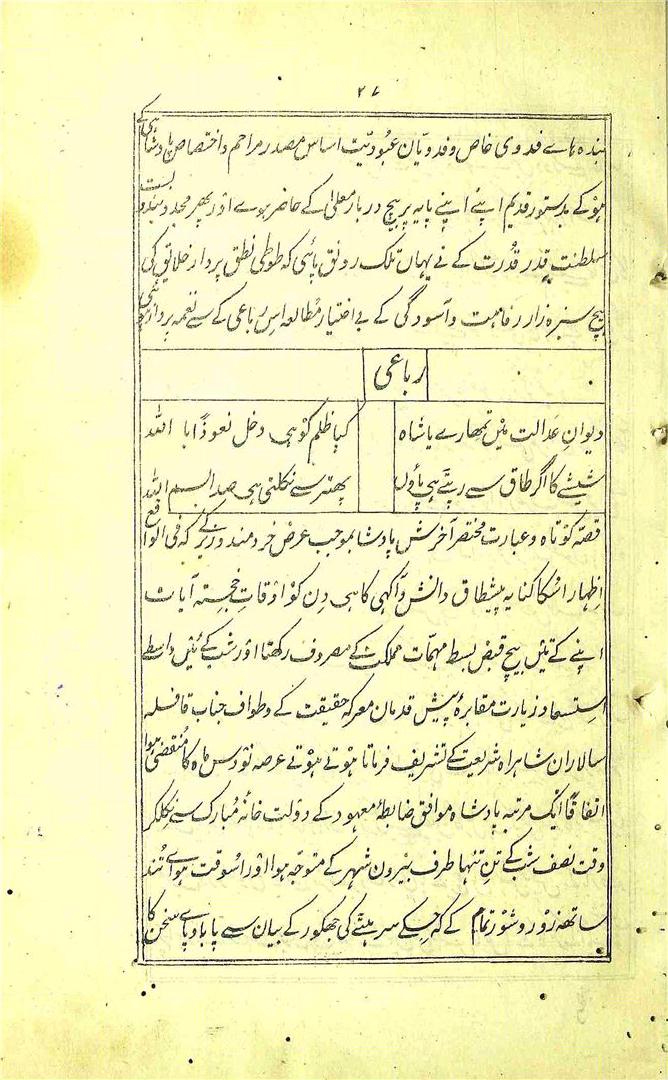 ۲۷
بندہ ہاے فدوی خاص و فدویان عبودیت اساس مصدر مراحم و اختصاص پادشاہی کے
ہوکے بدستور قدیم اپنے اپنے پایہ پر بیچ دربار معلیٰ کے حاضر ہوے اور پھر مجدد بندوبست
سلطنت قدر قدرت کے نے یہاں تلک رونق پائی کہ طوطی نطق پرداز خلایق کی
بیچ سبزہ زار رفاہیت و آسودگی کے بے اختیار مطالعہ اس رباعی کے سے نغمہ پرداز
رباعی
دیوانِ عدالت میں تمھارے یا شاہ
کیا ظلم کو ہی دخل نعوذاً باللہ
شیشے کا اگر طاق سے رپٹے ہی پاؤں
پھتر سے نکلتی ہی صدا بسم اللہ
قصہ کوتاہ و عبارت مختصر آخرش پادشا بموجب عرض خردمند وزیر کے کہ فی الواقع
اظہار اسکا کنایہ پیشطاق دانش و آگہی کا ہی دن کو اوقاتِ خجستہ آیات
اپنے کے تئیں بیچ قبض بسط مہمات مملکت کے مصروف رکھتا اور شب کے تئیں واسطے
استسعاد زیارت مقابرۂ پیش قدمان معرکہ حقیقت کے و طواف جناب قافلہ
سالاران شاہراہ شریعت کے تشریف فرماتا ہوتے ہوتے عرصہ نو دس ماہ کا منقضی ہوا
اتفاقاً ایک مرتبہ پادشاہ موافق ضابطۂ معہود کے دولت خانہ مبارک سے نکلکر
وقت نصف شب کے تنِ تنہا طرف بیرون شہر کے متوجہ ہوا اور اُسوقت ہواے تُند
ساتھہ زور و شور تمام کے کہ جسکے سرہٹے کی جھکور کے بیان سے پا باد پاے سخن کا